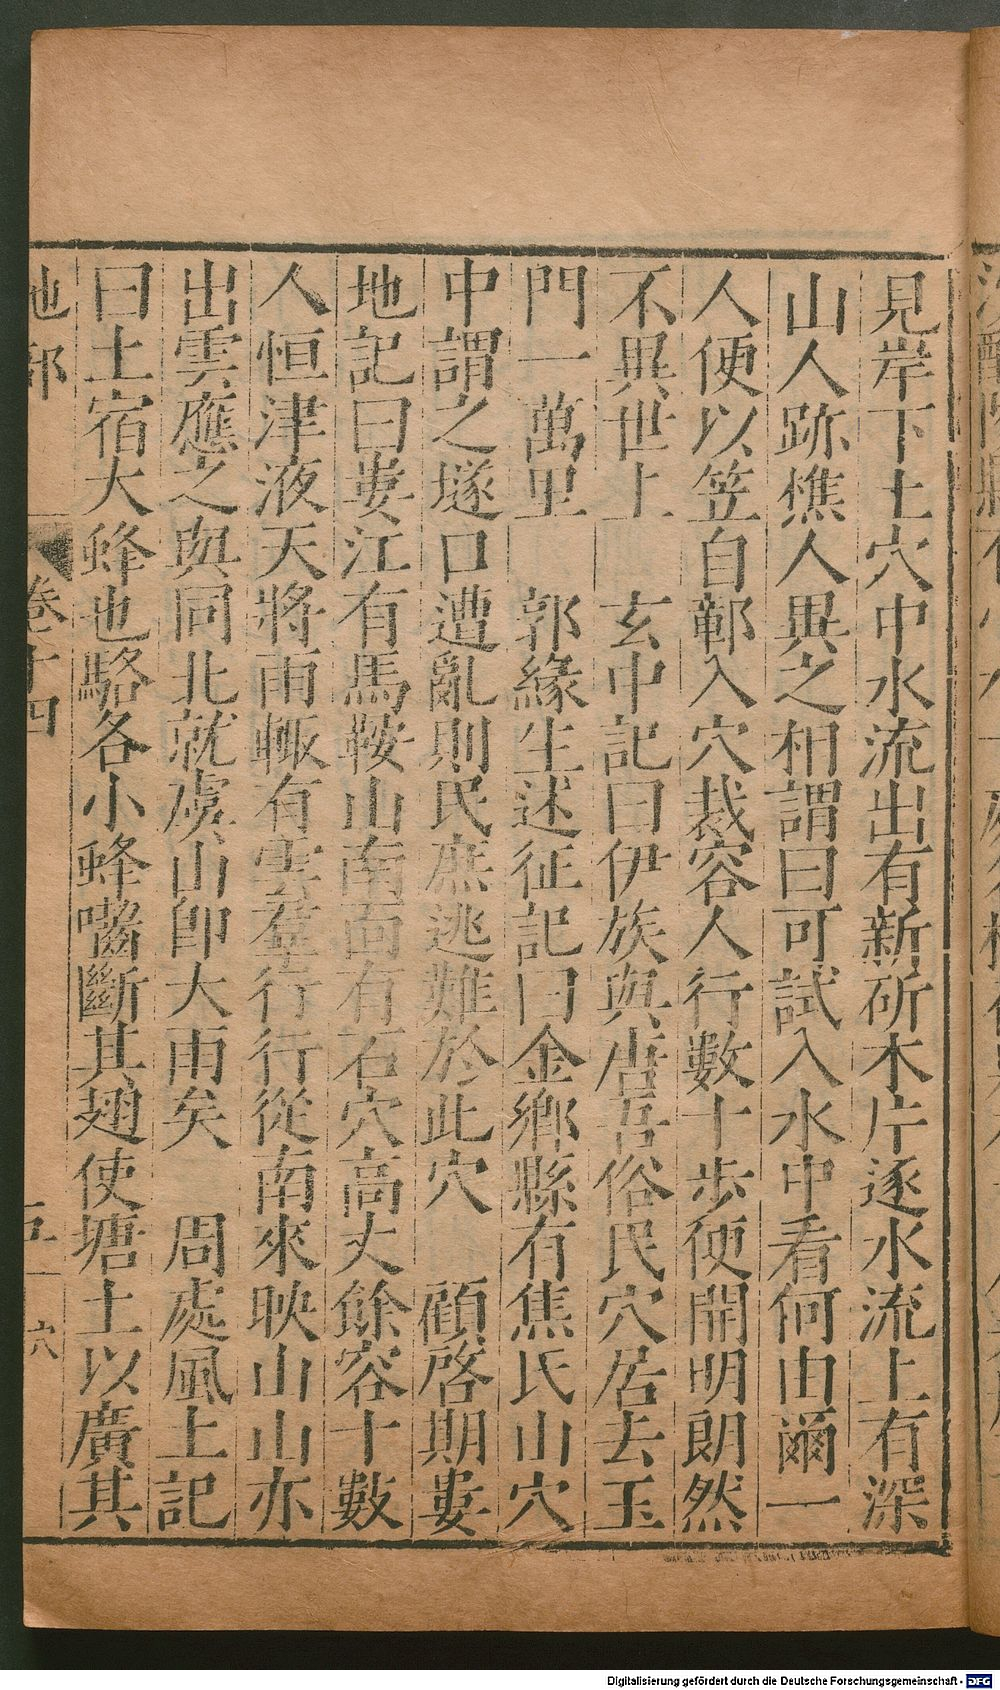 見岸下土穴中水流出有新斫木片逐水流上有深
山人跡樵人異之相謂曰可試入水中看何由爾一
人便以笠自鄣入穴裁容人行數十步便開明朗然
不異世上　玄中記曰伊族與唐吾俗民穴居去玉
門一萬里　郭緣生述征記曰金鄉縣有焦氏山穴
中謂之墜口遭亂則民庶逃難於此穴　顧啓期婁
地記曰婁江有馬鞍山南面有石穴高丈餘容十數
人恒津液天將雨輙有雲羣行行從南來映山山亦
出雲應之與同北就虞山卽大雨矣　周處風土記
曰土宿大蜂也駱各小蜂嚙斷其翅使塘土以廣其
地部　卷二十四　五　六
Digitalisierung gefördert durch die Deutsche Forschungsgemeinschaft - DFG